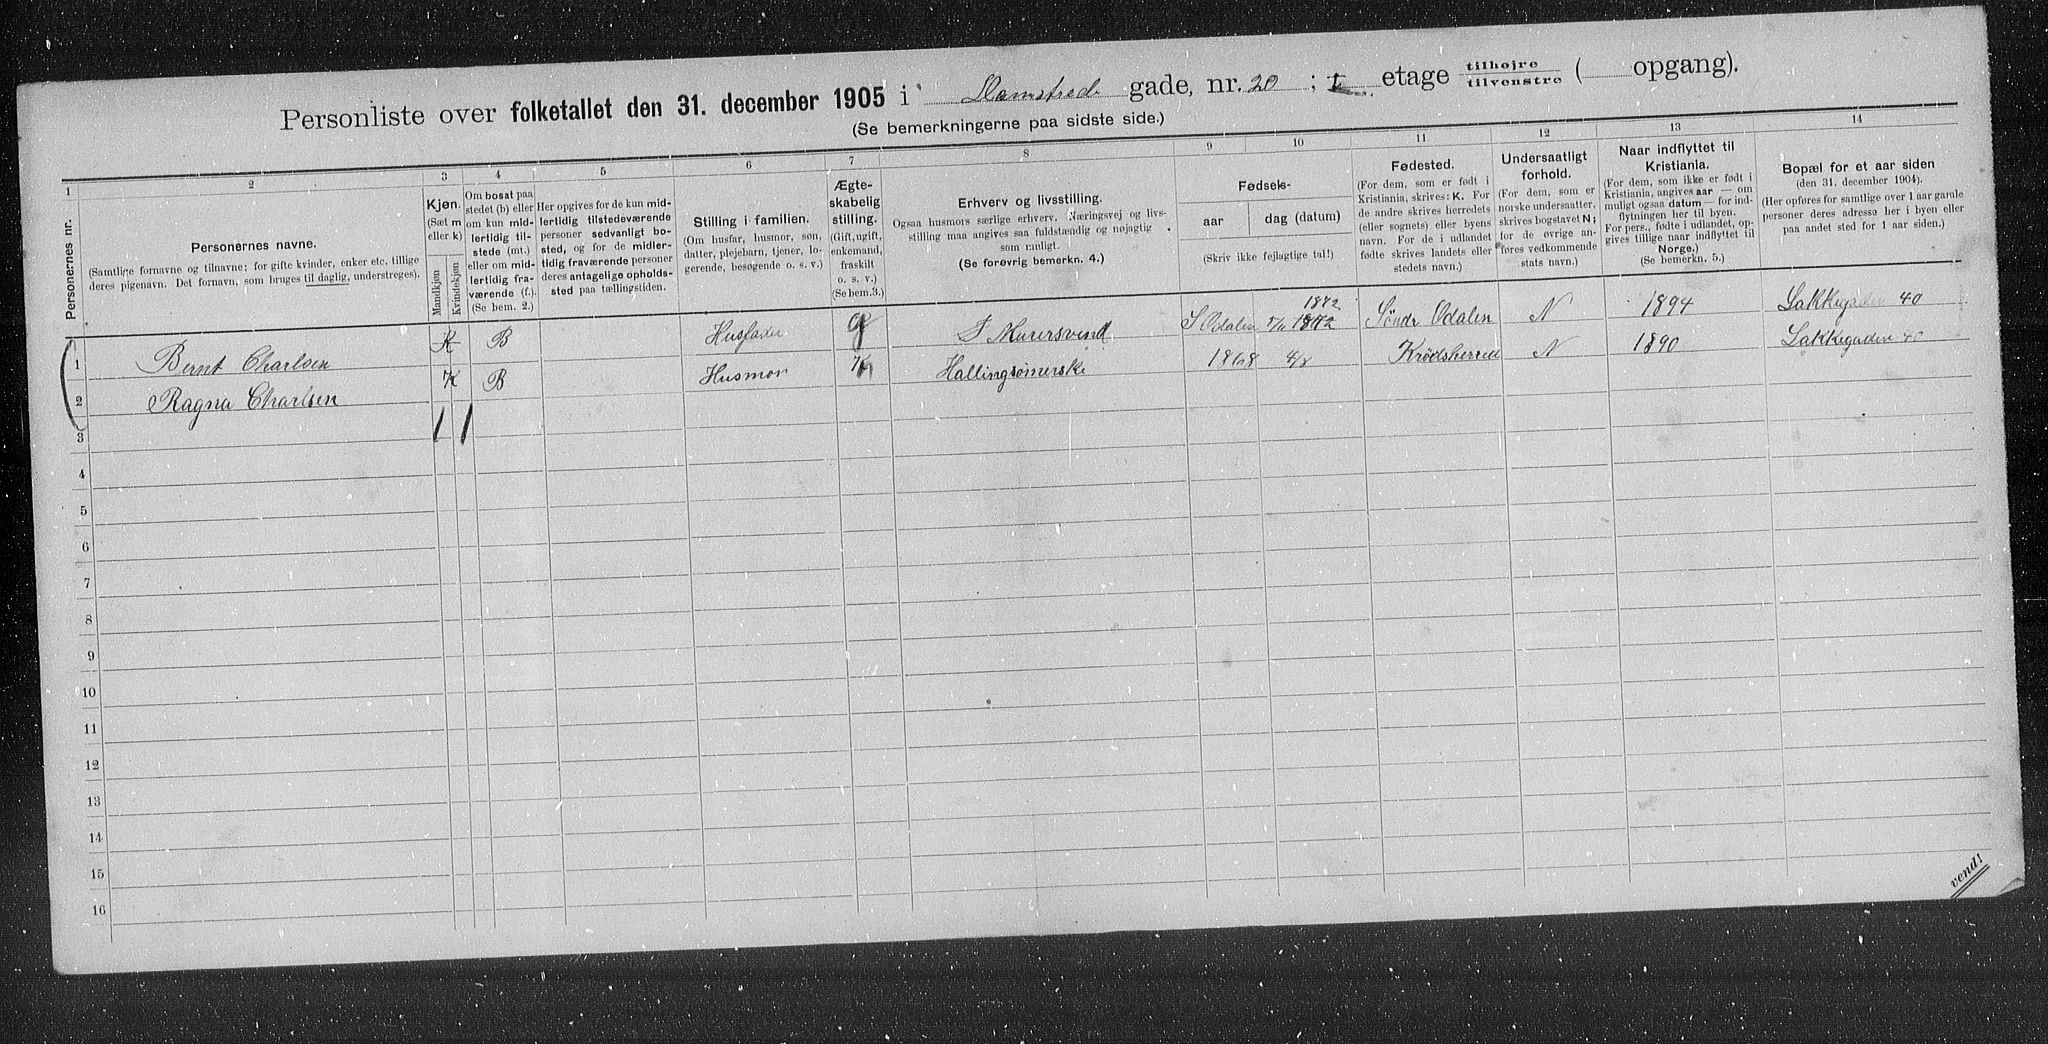 Personliste over folketallet den 31. december 1905 i Damstrede gade, nr. 20 ; I etage tilhøjre tilvenstre ( opgang).
(Se bemerkningerne paa sidste side.)
1 2 3 4 5 6 7 8 9 10 11 12 13 14
Personernes nr.
Personernes navne.
(Samtlige fornavne og tilnavne; for gifte kvinder, enker etc. tillige deres pigenavn. Det fornavn, som bruges til daglig, understreges).
Kjøn.
(Sæt m eller k)
Mandkjøn
Kvindekjøn
Om bosat paa stedet (b) eller om kun midlertidig tilstede (mt.) eller om midlertidig fraværende (f.). (Se bem. 2.)
Her opgives for de kun midlertidig tilstedeværende personer sedvanligt bosted, og for de midlertidig fraværende personer deres antagelige opholdssted paa tællingstiden.
Stilling i familien.
(Om husfar, husmor, søn, datter, plejebarn, tjener, logerende, besøgende o. s. v.)
Ægteskabelig stilling.
(Gift, ugift, enkemand, fraskilt o. s. v.)
(Se bem. 3.)
Erhverv og livsstilling.
Ogsaa husmors særlige erhverv. Næringsvej og livsstilling maa angives saa fuldstændig og nøjagtig som muligt.
(Se forøvrig bemerkn. 4.)
Fødsels-
aar
dag (datum)
(Skriv ikke fejlagtige tal!)
Fødested.
(For dem, som er født i Kristiania, skrives: K. For de andre skrives herredets (eller sognets) eller byens navn. For de i udlandet fødte skrives landets eller stedets navn.)
Undersaatligt forhold.
(For dem, som er norske undersatter, skrives bogstavet N; for de øvrige anføres vedkommende stats navn.)
Naar indflyttet til Kristiania.
(For pers., som ikke er født i Kristiania, angives aar — om muligt ogsaa datum — for indflytningen her til byen. For pers., fødte i udlandet, opgives tillige naar indflyttet til Norge.)
(Se bemerkn. 5.)
Bopæl for et aar siden
(den 31. december 1904).
(Her opføres for samtlige over 1 aar gamle personer deres adresse her i byen eller paa andet sted for 1 aar siden.)
1872
1 Bernt Charlsen K B Husfader g Murersvend S Odalen 5/11 1872 Söndr Odalen N 1894 Lakkegaden 40
2 Ragna Charlsen K B Husmor Hallingsømerske 1868 4/8 Krödsherred N 1890 Lakkegaden 40
3 1 1
4
5
6
7
8
9
10
11
12
13
14
15
16
vend!